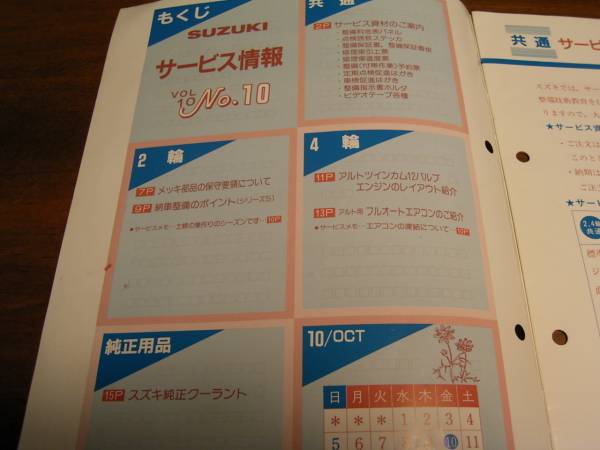 もくじ
SUZUKI
サービス情報
VOL 10 No.10
共通
2P サービス資材のご案内
・整備料金表パネル
・点検誘致ステッカ
・整備保証書、整備保証看板
・修理車引上票
・修理車進度票
・整備(付帯作業)予約票
・定期点検促進はがき
・車検促進はがき
・整備指示書ホルダ
・ビデオテープ各種
2 輪
7P メッキ部品の保守要領について
9P 納車整備のポイント(シリーズ5)
●サービスメモ…土曜の
りのシーズンです…10P
4 輪
11P アルトツインカム12バルブ
エンジンのレイアウト紹介
13P アルト用 フルオートエアコンのご紹介
●サービスメモ…エアコンの凍結について…
純正用品
15P スズキ純正クーラント
10/OCT
日 月 火 水 木 金 土
* * * 1 2 3 4
5 10 11
共通 サービ
スズキでは、サー
整備技術教育をし
りますので、大
★サービス資
・ご注文は
このと
・納期は
ご注文
★サー
2,4輪
共通
標準
ジ